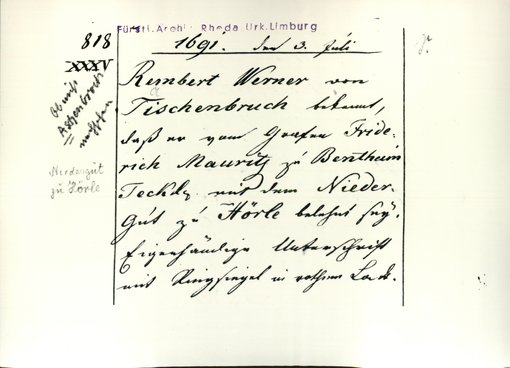 Fürstl. Archiv Rheda Urk. Limburg
818
XXXV
1691. den 3. Juli
Ob nicht
Aschenbrock
Niedergut
zu Hörle
Rembert Werner von
Tischenbruch bekennt,
daß er vom Grafen Fride-
rich Mauritz zu Bentheim
Teckl. mit dem Nieder-
Gut zu Hörle belehnt sey.
Eigenhändige Unterschrift
mit Ringsiegel in rothem Lack.